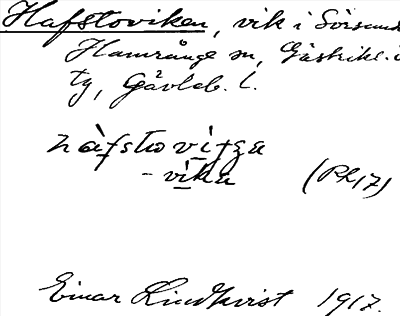 Hafstoviken, vik i Sörsund
Hamrånge sn, Gästrikl.
ty, Gävleb. l.
hàfstoviga
- vika (Rk 17)
Einar Lindkvist 1917.